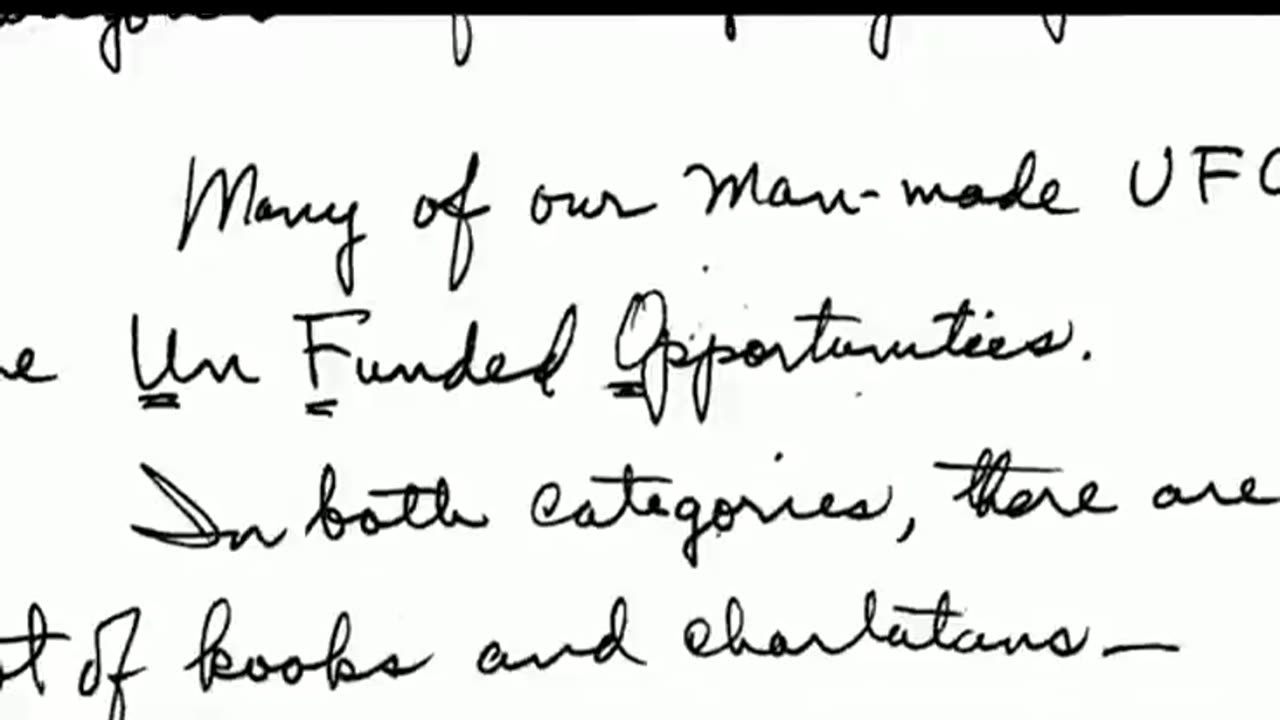 Many of our Man-made UFO
Un Funded Opportunities.
In both categories, there are
of kooks and charlatans—